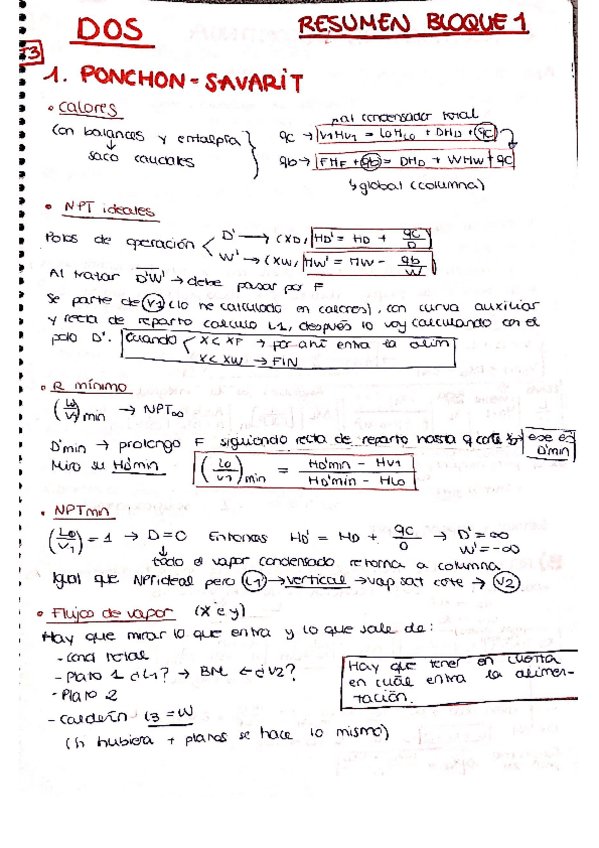 DOS
RESUMEN BLOQUE 1
T3
1. PONCHON-SAVARIT
• calores
Con balances y entalpía
↓
saco caudales
→ al condensador total
qc → V1HV1 = L0HL0 + DHD + qc
qb → FHF + qb = DHD + WHW + qc
↳ global (columna)
• NPT ideales
Polos de operación
D' → (XD, HD' = HD + qc/D
W' → (XW, HW' = HW - qb/W
Al trazar D'W' → debe pasar por F
Se parte de V1 (lo he calculado en calores), con curva auxiliar
y recta de reparto calculo L1, después lo voy calculando con el
polo D'. Cuando
X < XF → por ahí entra la alim
X < XW → FIN
• R mínimo
(L0/V1)min → NPT∞
D'min → prolongo F siguiendo recta de reparto hasta q corte → ese es D'min
Miro su HD'min
(L0/V1)min = (HD'min - HV1)/(HD'min - HL0)
• NPTmin
(L0/V1) = 1 → D=0 Entonces HD' = HD + qc/0 → D'=∞
W'=-∞
↓
todo el vapor condensado retorna a columna
Igual que NPTideal pero L1 → vertical → vap sat corte → V2
• Flujos de vapor (x e y)
Hay que mirar lo que entra y lo que sale de:
- Cond total
- Plato 1 ¿L1? → BM ← ¿V2?
- Plato 2
- Calderín L3 = W
(si hubiera + platos se hace lo mismo)
Hay que tener en cuenta
en cuál entra la alimen-
tación.